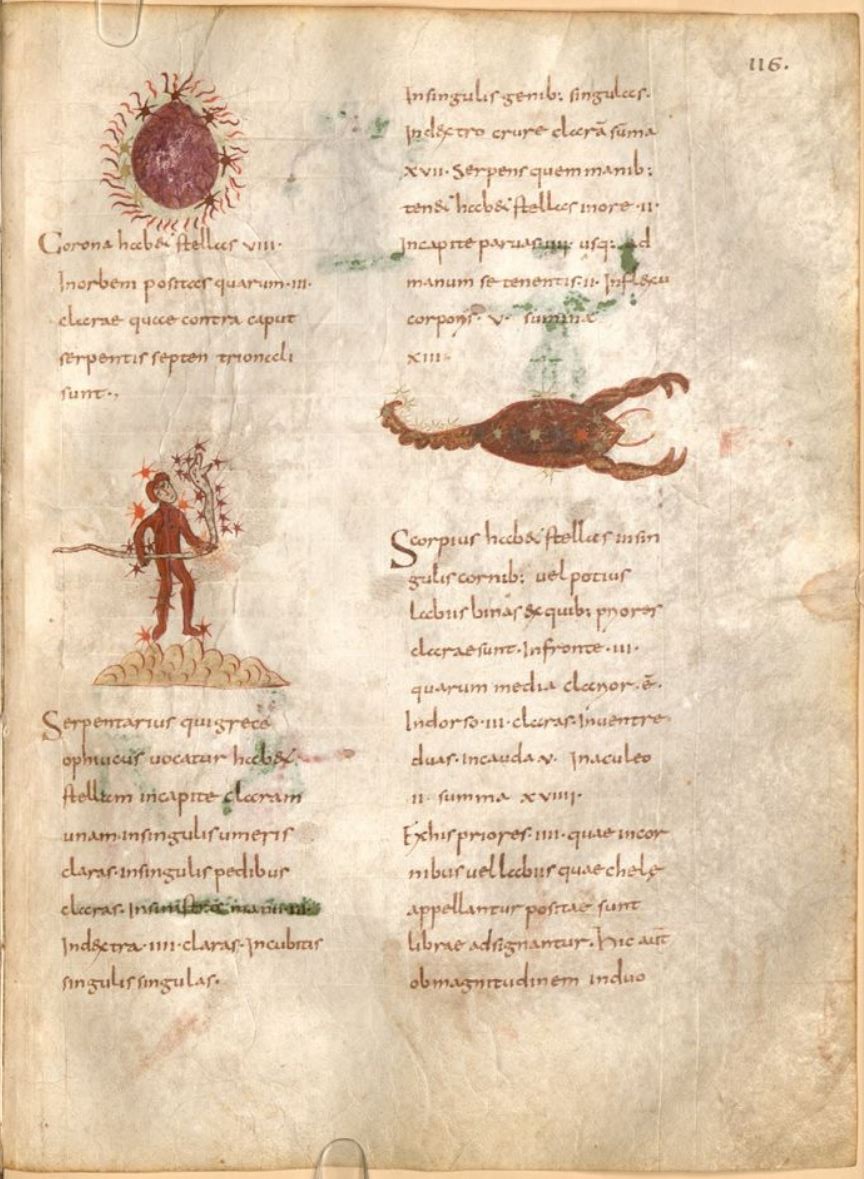 116.
Corona habet stellas VIII·
Inorbem positas quarum·III·
clarae quae contra caput
serpentis septen trionali
sunt·,
Serpentarius qui grece
ophiucus vocatur habet
stellam incapite claram
unam·insingulis umeris
claras·insingulis pedibus
claras· Insinistra manu·III·
Indextra·IIII·claras·Incubitis
singulis singulas·
Insingulis genib; singulas·
Indextro crure clarā sūma
XVII· Serpens quem manib;
tenet habet stellas inore·II·
Incapite parvas·IIII· usq; ad
manum se tenentis·II· Inflexu
corporis· V· summa
XIII·
Scorpius habet stellas insin
gulis cornib; vel potius
labus binas ex quib; priores
clarae sunt·Infronte·III·
quarum media clarior·ē·
Indorso·III·claras·Inventre·
duas·incauda V· Inaculeo
II· summa XVIIII·
Exhis priores·IIII·quae incor
nibus vel labus quae chelę
appellantur positae sunt
librae adsignantur· Hic aūt
ob magnitudinem induo